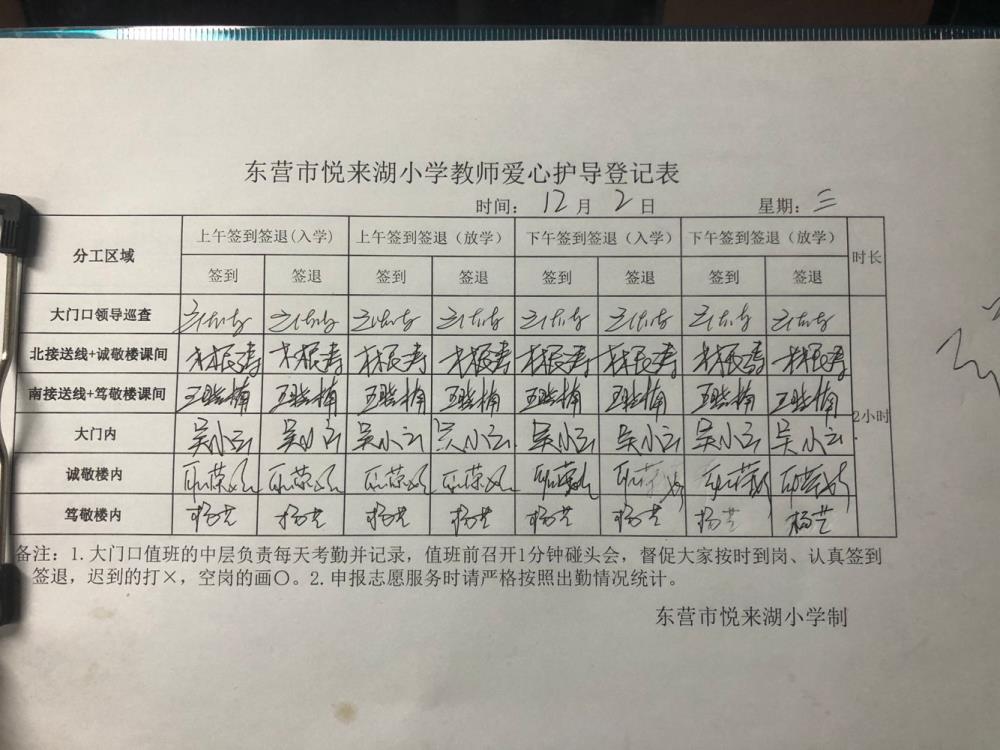 东营市悦来湖小学教师爱心护导登记表
时间：12月2日 星期：三
分工区域 上午签到签退(入学) 上午签到签退（放学） 下午签到签退（入学） 下午签到签退（放学） 时长
签到 签退 签到 签退 签到 签退 签到 签退
大门口领导巡查
北接送线+诚敬楼课间 林根涛 林根涛 林根涛 林根涛 林根涛 林根涛 林根涛 林根涛
南接送线+笃敬楼课间 王晓楠 王晓楠 王晓楠 王晓楠 王晓楠 王晓楠 王晓楠 王晓楠
2小时
大门内 吴小云 吴小云 吴小云 吴小云 吴小云 吴小云 吴小云 吴小云
诚敬楼内
笃敬楼内 杨芸 杨芸 杨芸 杨芸 杨芸 杨芸 杨芸 杨芸
备注：1.大门口值班的中层负责每天考勤并记录，值班前召开1分钟碰头会，督促大家按时到岗、认真签到
签退，迟到的打×，空岗的画〇。2.申报志愿服务时请严格按照出勤情况统计。
东营市悦来湖小学制